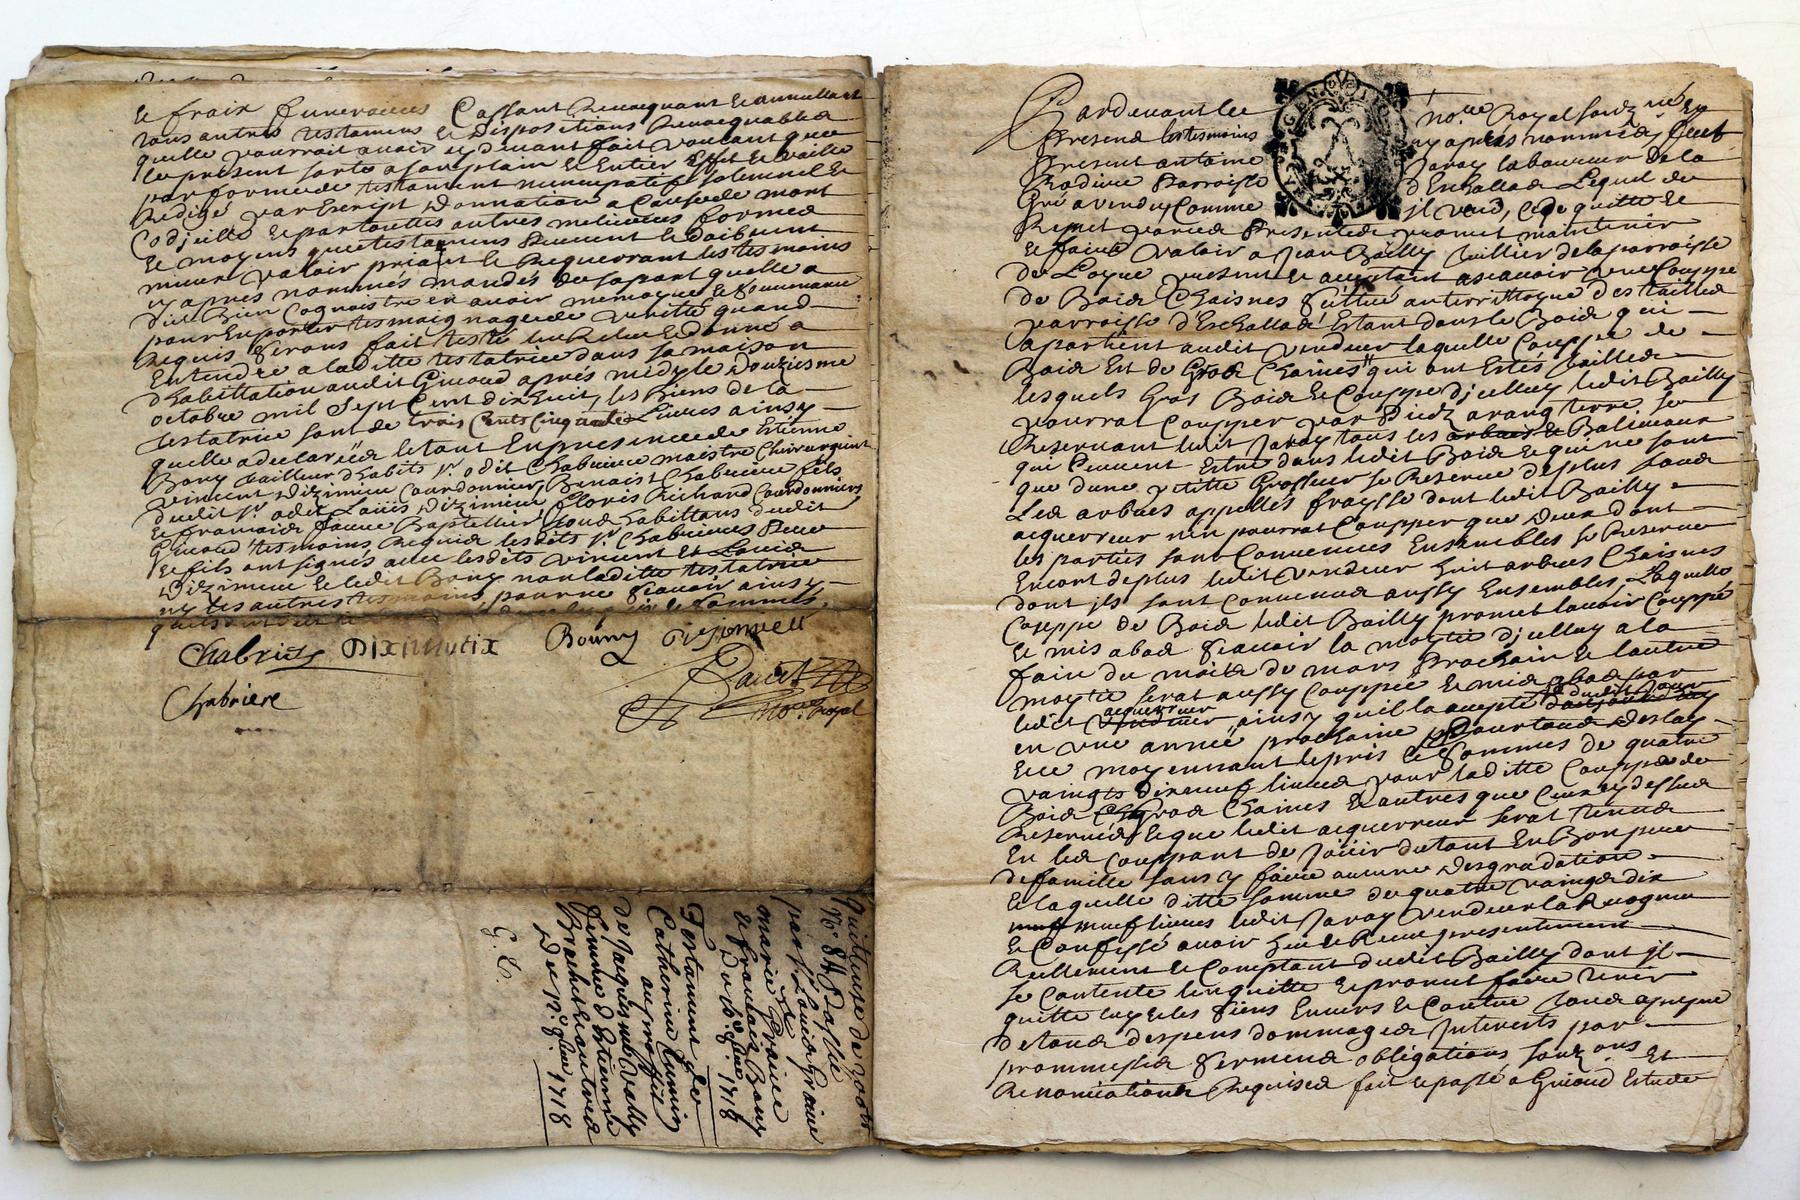 et fraix funeraires Cassant Revocquant et annullant
tous autres testamens et dispositions Revocquables
quelle pourroit avoir cy devant fait voulant que
le present sorte a son plain et Entier Effet et vaille
par forme de testament nuncupatif solemnel et
Redigé par Escript donnation a Cause de mort
Codicille et par touttes autres meilieures formes
et moyens que testamens peuvent et doibvent
mieux valoir priant et Requerrant les tesmoins
cy aprés nommés mandés de sa part quelle a
dit bien Cognoistre en avoir memoyre et souvenance
pour En porter tesmoignage de verité quand
Requis seront fait testé leu Releu et donné a
Entendre a laditte testatrice dans sa maison
d'habittation audit Giraud aprés midy le douziesme
octobre mil sept Cent dix huit, les biens de la
testatrice sont de trois Cents Cinquante Livres ainsy
quelle a declaré le tout En presence de Estienne
Bony tailleur d'habits sr. odit Chabriere maistre Chirurgient
vincent diximieu Courdonnier Benoist Chabriere fils
dudit sr. odit Louis diximieu Floris Richard Courdonniers
et francois faure Baptellier tous habittans dudit
Giraud tesmoins Requis lesdits srs. Chabrieres pere
et fils ont signés avec lesdits vincent et Louis
diximieu et ledit Bony non laditte testatrice
ny les autres tesmoins pour ne scavoir ainsy
Chabriere Diximieux Bonny
Chabriere
no.re Royal
Quittance
No. 84 passée
par sr. Louis Graine
et
marie Graine
et francois Bony
Du 10 8bre 1718
Testament de
Catherine
au proffit
de Jacques
femme d'Estienne
Brachet et autres
Du 12 8bre 1718
G. C.
Pardevant le no.re Royal soubz.né En
Presence les tesmoins cy aprés nommés, fust
Present antoine Jaray laboureur de la
Parroisse d'Eschallas Lequel de
Gré a vendu Comme il vend, cede quitte et
Remet par ces Presentes promet maintenir
et faire valoir a Jean Bailly tuillier de la parroisse
de Loyre present et acceptant ascavoir une Couppe
de Bois Chaisnes scittue au territtoyre des tailles
parroisse d'Eschallas Estant dans le Bois qui
apartient audit vendeur laquelle Couppe de
Bois Est de Gros Chaines qui ont Estés baillés
lesquels Gros Bois et Couppe d'jcelluy ledit Bailly
pourrat Coupper par pieds a rang terre se
Reservant ledit Jaray tous les Balliveaux
qui peuvent Estre dans ledit Bois et qui ne sont
que d'une petitte Grosseur se Reserve de plus tous
Les arbres appellés fraysse dont ledit Bailly
acquerreur n'en pourrat Coupper que deux dont
les parties sont Convenues Ensembles se Reserve
Encore de plus ledit vendeur huit arbres Chaisnes
dont ils sont Convenus aussy Ensembles, Laquelle
Couppe de Bois ledit Bailly promet lavoir Couppé
et mis abas scavoir la moytié d'jcelluy a la
fain du mois de mars prochain et lautre
moytié serat aussy Couppée et mis abas par
ledit acquerreur ainsy quil l'accepte dudit Jaray
en une année prochaine
Et ce moyennant le pris et sommes de quatre
vaingts dix neuf livres pour laditte Couppe de
Bois Gros Chaines et autres que ceux cy dessus
Reservés et que ledit acquerreur serat tenus
En les Couppant de joüir du tout En Bon pere
de famille sans y faire aucune desgradation
et laquelle ditte somme de quatre vaingts dix
neuf livres ledit Jaray vendeur la Recognu
et Confessé avoir heu et Receu presentement
Reellement et Comptant dudit Bailly dont jl
se Contente len quitte et promet faire tenir
quitte luy et les siens Envers et Contre tous a peyne
de tous despens dommages Interests par
promesses serments obligations soubz.ons Et
Renonciations Requises fait et passé a Giraud Estude